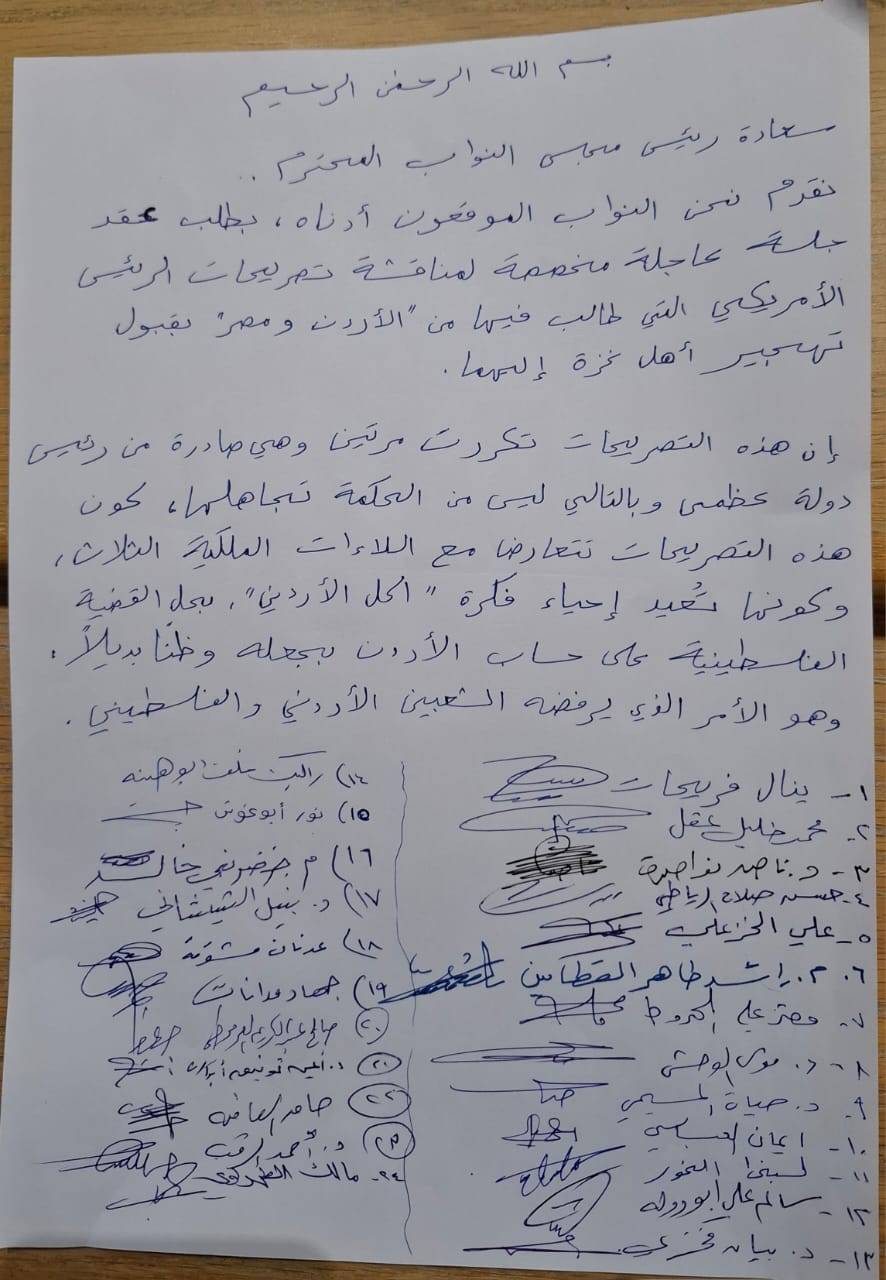 بسم الله الرحمن الرحيم
سعادة رئيس مجلس النواب المحترم ..
نقدم نحن النواب الموقعون أدناه، بطلب عقد
جلسة عاجلة مخصصة لمناقشة تصريحات الرئيس
الأمريكي التي طالب فيها من "الأردن ومصر" بقبول
تهجير أهل غزة إليهما.
إن هذه التصريحات تكررت مرتين وهي صادرة من رئيس
دولة عظمى وبالتالي ليس من الحكمة تجاهلها، كون
هذه التصريحات تتعارض مع اللاءات الملكية الثلاث،
وكونها تُعيد إحياء فكرة "الحل الأردني"، بحل القضية
الفلسطينية على حساب الأردن بجعله وطنًا بديلاً.
وهو الأمر الذي يرفضه الشعبين الأردني والفلسطيني.
١- ينال فريحات
٢- محمد خليل عقل
٣- د. ناصر نواصرة
٤- حسن صلاح الرياطي
٥- علي الخزعلي
٦. م. راشد طاهر القطامين
٧- معتز علي الهروط
٨- د. موسى الوحش
٩- د. حياة المسيمي
١٠- ايمان العباسي
١١- لبنى النمور
١٢- سالم علي ابو دولة
١٣- د. بيان فخري
١٤) راكين خلف ابو هنيه
١٥) نور أبو غوش
١٦) م. خضر بني خالد
١٧) د. نبيل الشيشاني
١٨) عدنان مشوقة
١٩) جهاد مدانات
٢٠) صالح عبدالكريم
٢٠) د.
٢٢)
٢٣) د. أحمد الرقب
٢٤- مالك الطهراوي